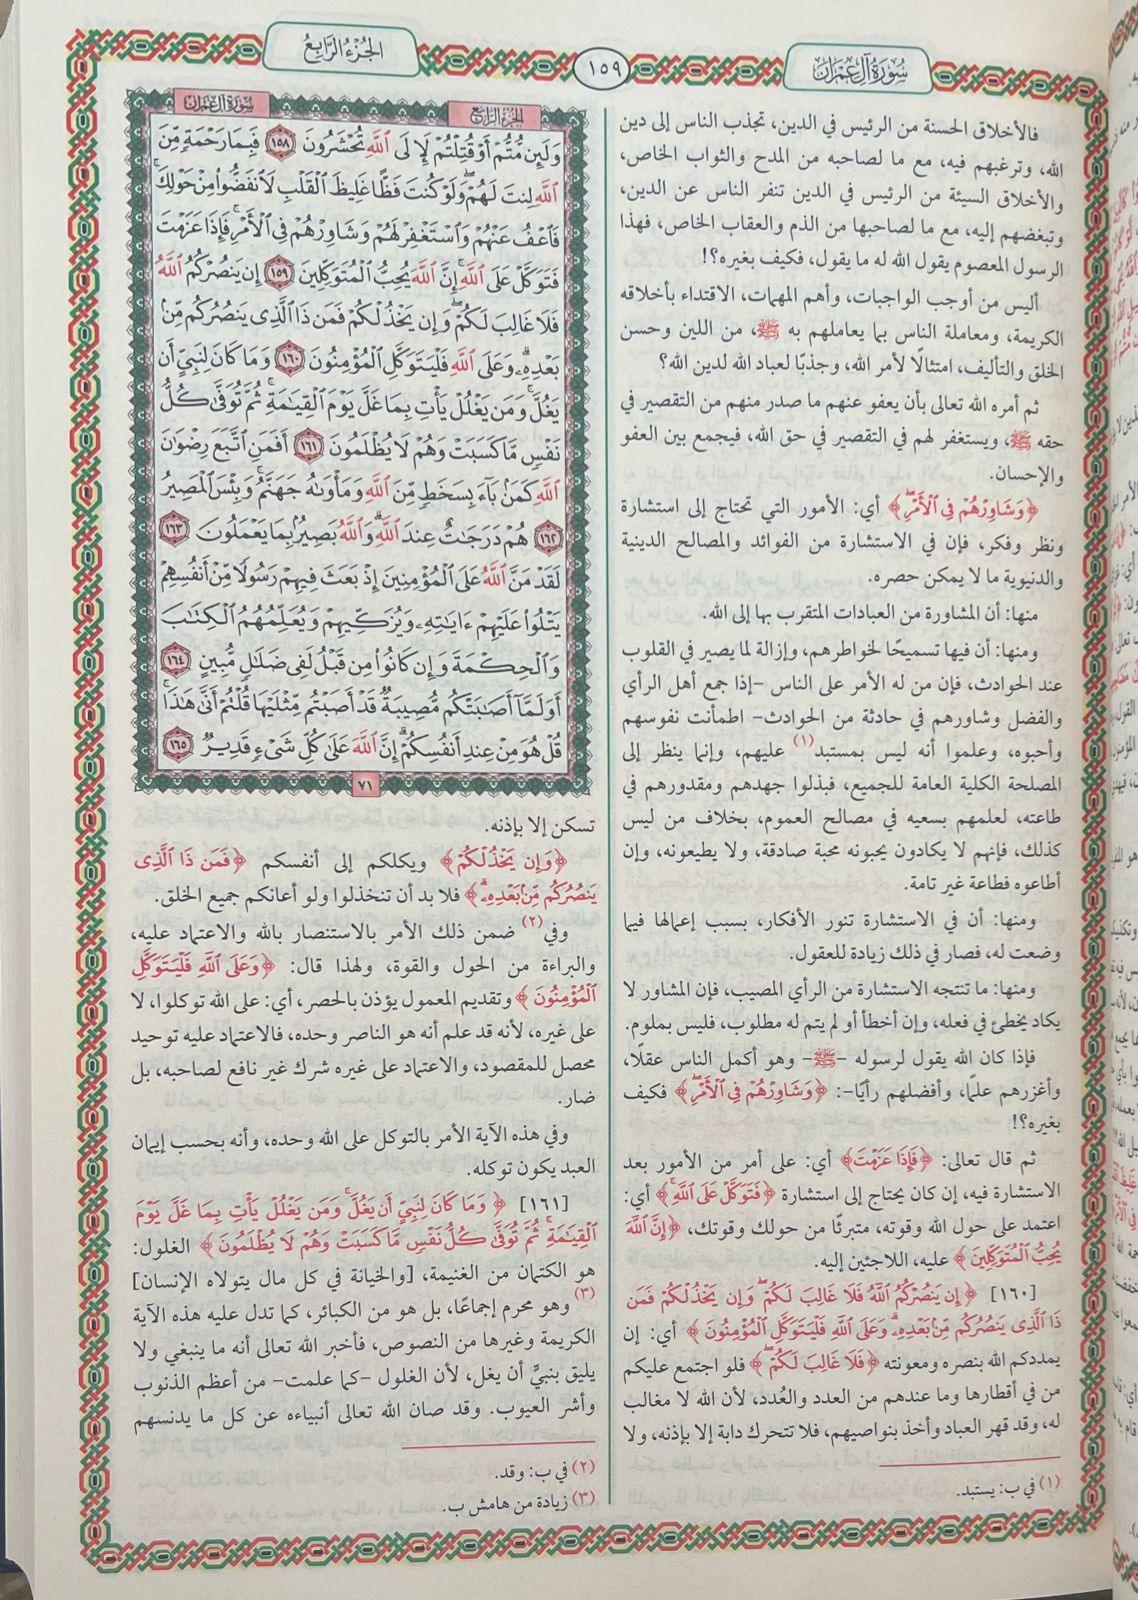 سُورَةُ آلِ عِمْرَانَ
١٥٩
الجُزْءُ الرَّابِعُ
فالأخلاق الحسنة من الرئيس في الدين، تجذب الناس إلى دين
الله، وترغبهم فيه، مع ما لصاحبه من المدح والثواب الخاص،
والأخلاق السيئة من الرئيس في الدين تنفر الناس عن الدين،
وتبغضهم إليه، مع ما لصاحبها من الذم والعقاب الخاص، فهذا
الرسول المعصوم يقول الله له ما يقول، فكيف بغيره؟!
أليس من أوجب الواجبات، وأهم المهمات، الاقتداء بأخلاقه
الكريمة، ومعاملة الناس بما يعاملهم به ﷺ، من اللين وحسن
الخلق والتأليف، امتثالًا لأمر الله، وجذبًا لعباد الله لدين الله؟
ثم أمره الله تعالى بأن يعفو عنهم ما صدر منهم من التقصير في
حقه ﷺ، ويستغفر لهم في التقصير في حق الله، فيجمع بين العفو
والإحسان.
﴿وَشَاوِرْهُمْ فِي الْأَمْرِ﴾ أي: الأمور التي تحتاج إلى استشارة
ونظر وفكر، فإن في الاستشارة من الفوائد والمصالح الدينية
والدنيوية ما لا يمكن حصره.
منها: أن المشاورة من العبادات المتقرب بها إلى الله.
ومنها: أن فيها تسميحًا لخواطرهم، وإزالة لما يصير في القلوب
عند الحوادث، فإن من له الأمر على الناس -إذا جمع أهل الرأي
والفضل وشاورهم في حادثة من الحوادث- اطمأنت نفوسهم
وأحبوه، وعلموا أنه ليس بمستبد(١) عليهم، وإنما ينظر إلى
المصلحة الكلية العامة للجميع، فبذلوا جهدهم ومقدورهم في
طاعته، لعلمهم بسعيه في مصالح العموم، بخلاف من ليس
كذلك، فإنهم لا يكادون يحبونه محبة صادقة، ولا يطيعونه، وإن
أطاعوه فطاعة غير تامة.
ومنها: أن في الاستشارة تنور الأفكار، بسبب إعمالها فيما
وضعت له، فصار في ذلك زيادة للعقول.
ومنها: ما تنتجه الاستشارة من الرأي المصيب، فإن المشاور لا
يكاد يخطئ في فعله، وإن أخطأ أو لم يتم له مطلوب، فليس بملوم.
فإذا كان الله يقول لرسوله -ﷺ- وهو أكمل الناس عقلًا،
وأغزرهم علمًا، وأفضلهم رأيًا-: ﴿وَشَاوِرْهُمْ فِي الْأَمْرِ﴾ فكيف
بغيره؟!
ثم قال تعالى: ﴿فَإِذَا عَزَمْتَ﴾ أي: على أمر من الأمور بعد
الاستشارة فيه، إن كان يحتاج إلى استشارة ﴿فَتَوَكَّلْ عَلَى اللَّهِ﴾ أي:
اعتمد على حول الله وقوته، متبرئًا من حولك وقوتك، ﴿إِنَّ اللَّهَ
يُحِبُّ الْمُتَوَكِّلِينَ﴾ عليه، اللاجئين إليه.
[١٦٠] ﴿إِن يَنصُرْكُمُ اللَّهُ فَلَا غَالِبَ لَكُمْ وَإِن يَخْذُلْكُمْ فَمَن
ذَا الَّذِي يَنصُرُكُم مِّن بَعْدِهِ وَعَلَى اللَّهِ فَلْيَتَوَكَّلِ الْمُؤْمِنُونَ﴾ أي: إن
يمددكم الله بنصره ومعونته ﴿فَلَا غَالِبَ لَكُمْ﴾ فلو اجتمع عليكم
من في أقطارها وما عندهم من العدد والعُدد، لأن الله لا مغالب
له، وقد قهر العباد وأخذ بنواصيهم، فلا تتحرك دابة إلا بإذنه، ولا
(١) في ب: يستبد.
سُورَةُ آلِ عِمْرَانَ
الجُزْءُ الرَّابِعُ
وَلَئِن مُّتُّمْ أَوْ قُتِلْتُمْ لَإِلَى اللَّهِ تُحْشَرُونَ ١٥٨ فَبِمَا رَحْمَةٍ مِّنَ
اللَّهِ لِنتَ لَهُمْ وَلَوْ كُنتَ فَظًّا غَلِيظَ الْقَلْبِ لَانفَضُّوا مِنْ حَوْلِكَ
فَاعْفُ عَنْهُمْ وَاسْتَغْفِرْ لَهُمْ وَشَاوِرْهُمْ فِي الْأَمْرِ فَإِذَا عَزَمْتَ
فَتَوَكَّلْ عَلَى اللَّهِ إِنَّ اللَّهَ يُحِبُّ الْمُتَوَكِّلِينَ ١٥٩ إِن يَنصُرْكُمُ اللَّهُ
فَلَا غَالِبَ لَكُمْ وَإِن يَخْذُلْكُمْ فَمَن ذَا الَّذِي يَنصُرُكُم مِّن
بَعْدِهِ وَعَلَى اللَّهِ فَلْيَتَوَكَّلِ الْمُؤْمِنُونَ ١٦٠ وَمَا كَانَ لِنَبِيٍّ أَن
يَغُلَّ وَمَن يَغْلُلْ يَأْتِ بِمَا غَلَّ يَوْمَ الْقِيَامَةِ ثُمَّ تُوَفَّى كُلُّ
نَفْسٍ مَّا كَسَبَتْ وَهُمْ لَا يُظْلَمُونَ ١٦١ أَفَمَنِ اتَّبَعَ رِضْوَانَ
اللَّهِ كَمَن بَاءَ بِسَخَطٍ مِّنَ اللَّهِ وَمَأْوَاهُ جَهَنَّمُ وَبِئْسَ الْمَصِيرُ
١٦٢ هُمْ دَرَجَاتٌ عِندَ اللَّهِ وَاللَّهُ بَصِيرٌ بِمَا يَعْمَلُونَ ١٦٣
لَقَدْ مَنَّ اللَّهُ عَلَى الْمُؤْمِنِينَ إِذْ بَعَثَ فِيهِمْ رَسُولًا مِّنْ أَنفُسِهِمْ
يَتْلُو عَلَيْهِمْ آيَاتِهِ وَيُزَكِّيهِمْ وَيُعَلِّمُهُمُ الْكِتَابَ
وَالْحِكْمَةَ وَإِن كَانُوا مِن قَبْلُ لَفِي ضَلَالٍ مُّبِينٍ ١٦٤
أَوَلَمَّا أَصَابَتْكُم مُّصِيبَةٌ قَدْ أَصَبْتُم مِّثْلَيْهَا قُلْتُمْ أَنَّى هَٰذَا
قُلْ هُوَ مِنْ عِندِ أَنفُسِكُمْ إِنَّ اللَّهَ عَلَى كُلِّ شَيْءٍ قَدِيرٌ ١٦٥
٧١
تسكن إلا بإذنه.
﴿وَإِن يَخْذُلْكُمْ﴾ ويكلكم إلى أنفسكم ﴿فَمَن ذَا الَّذِي
يَنصُرُكُم مِّن بَعْدِهِ﴾ فلا بد أن تنخذلوا ولو أعانكم جميع الخلق.
وفي(٢) ضمن ذلك الأمر بالاستنصار بالله والاعتماد عليه،
والبراءة من الحول والقوة، ولهذا قال: ﴿وَعَلَى اللَّهِ فَلْيَتَوَكَّلِ
الْمُؤْمِنُونَ﴾ وتقديم المعمول يؤذن بالحصر، أي: على الله توكلوا، لا
على غيره، لأنه قد علم أنه هو الناصر وحده، فالاعتماد عليه توحيد
محصل للمقصود، والاعتماد على غيره شرك غير نافع لصاحبه، بل
ضار.
وفي هذه الآية الأمر بالتوكل على الله وحده، وأنه بحسب إيمان
العبد يكون توكله.
[١٦١] ﴿وَمَا كَانَ لِنَبِيٍّ أَن يَغُلَّ وَمَن يَغْلُلْ يَأْتِ بِمَا غَلَّ يَوْمَ
الْقِيَامَةِ ثُمَّ تُوَفَّى كُلُّ نَفْسٍ مَّا كَسَبَتْ وَهُمْ لَا يُظْلَمُونَ﴾ الغلول:
هو الكتمان من الغنيمة، [والخيانة في كل مال يتولاه الإنسان]
(٣) وهو محرم إجماعًا، بل هو من الكبائر، كما تدل عليه هذه الآية
الكريمة وغيرها من النصوص، فأخبر الله تعالى أنه ما ينبغي ولا
يليق بنبيٍّ أن يغل، لأن الغلول -كما علمت- من أعظم الذنوب
وأشر العيوب. وقد صان الله تعالى أنبياءه عن كل ما يدنسهم
(٢) في ب: وقد.
(٣) زيادة من هامش ب.